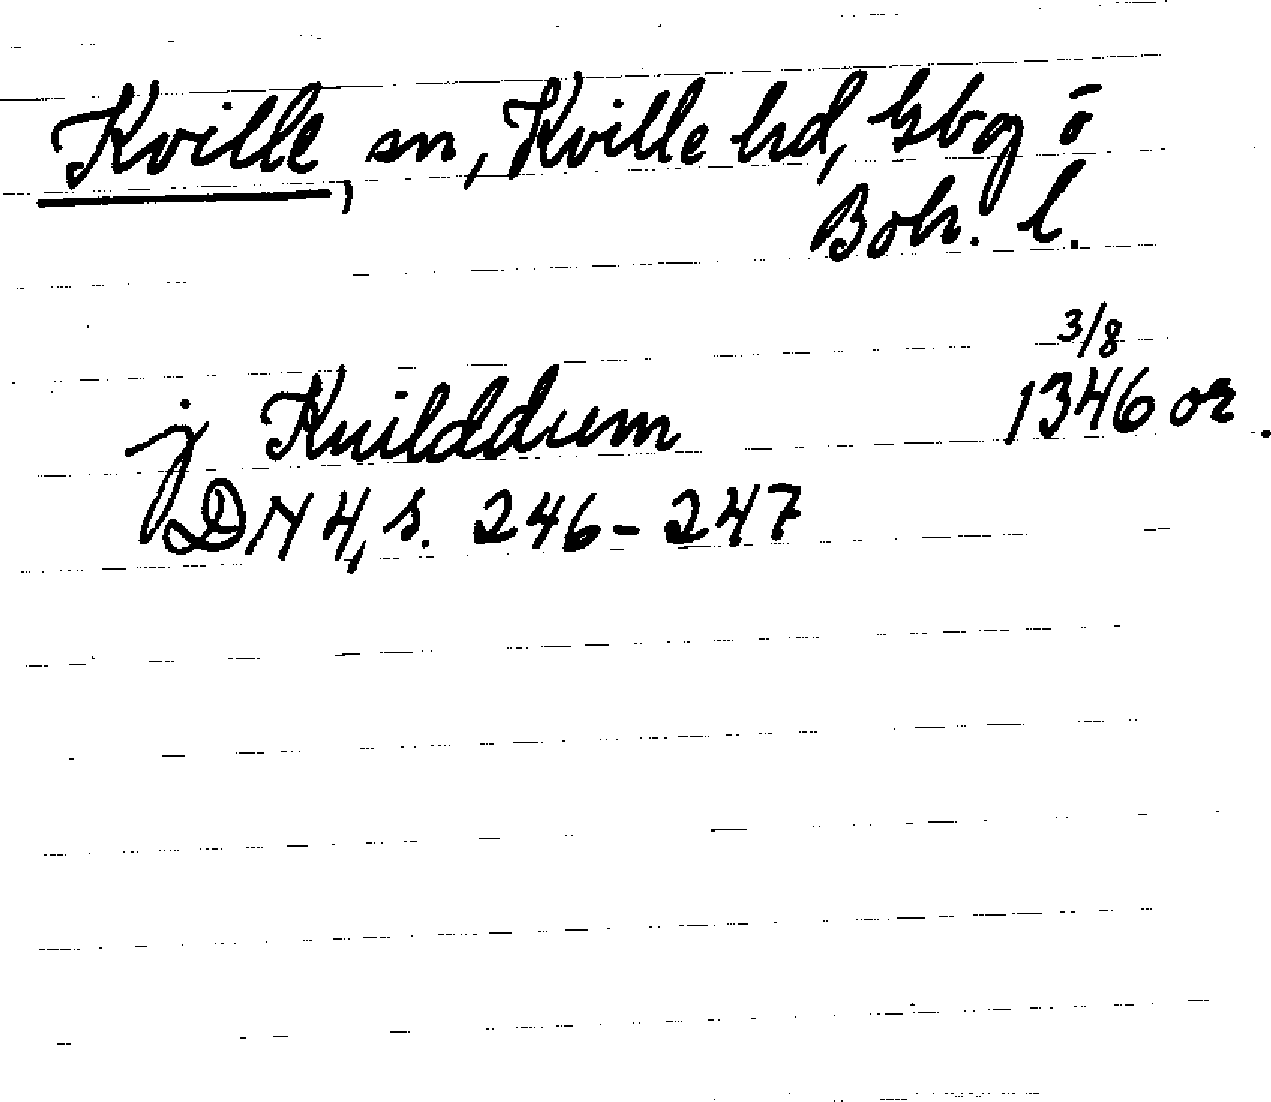 Kville, sn, Kville hd, Gbg o
Boh. l.
3/8
j Kuilddum 1346 or.
DN 4, s. 246-247